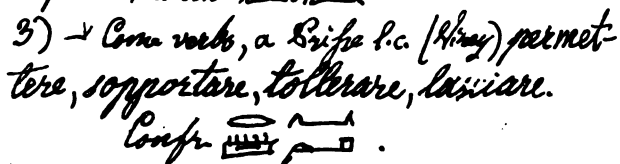 3) → Come verbo, a Prisse l.c. (Virey) permet-
tere, sopportare, tollerare, lasciare.
Confr.